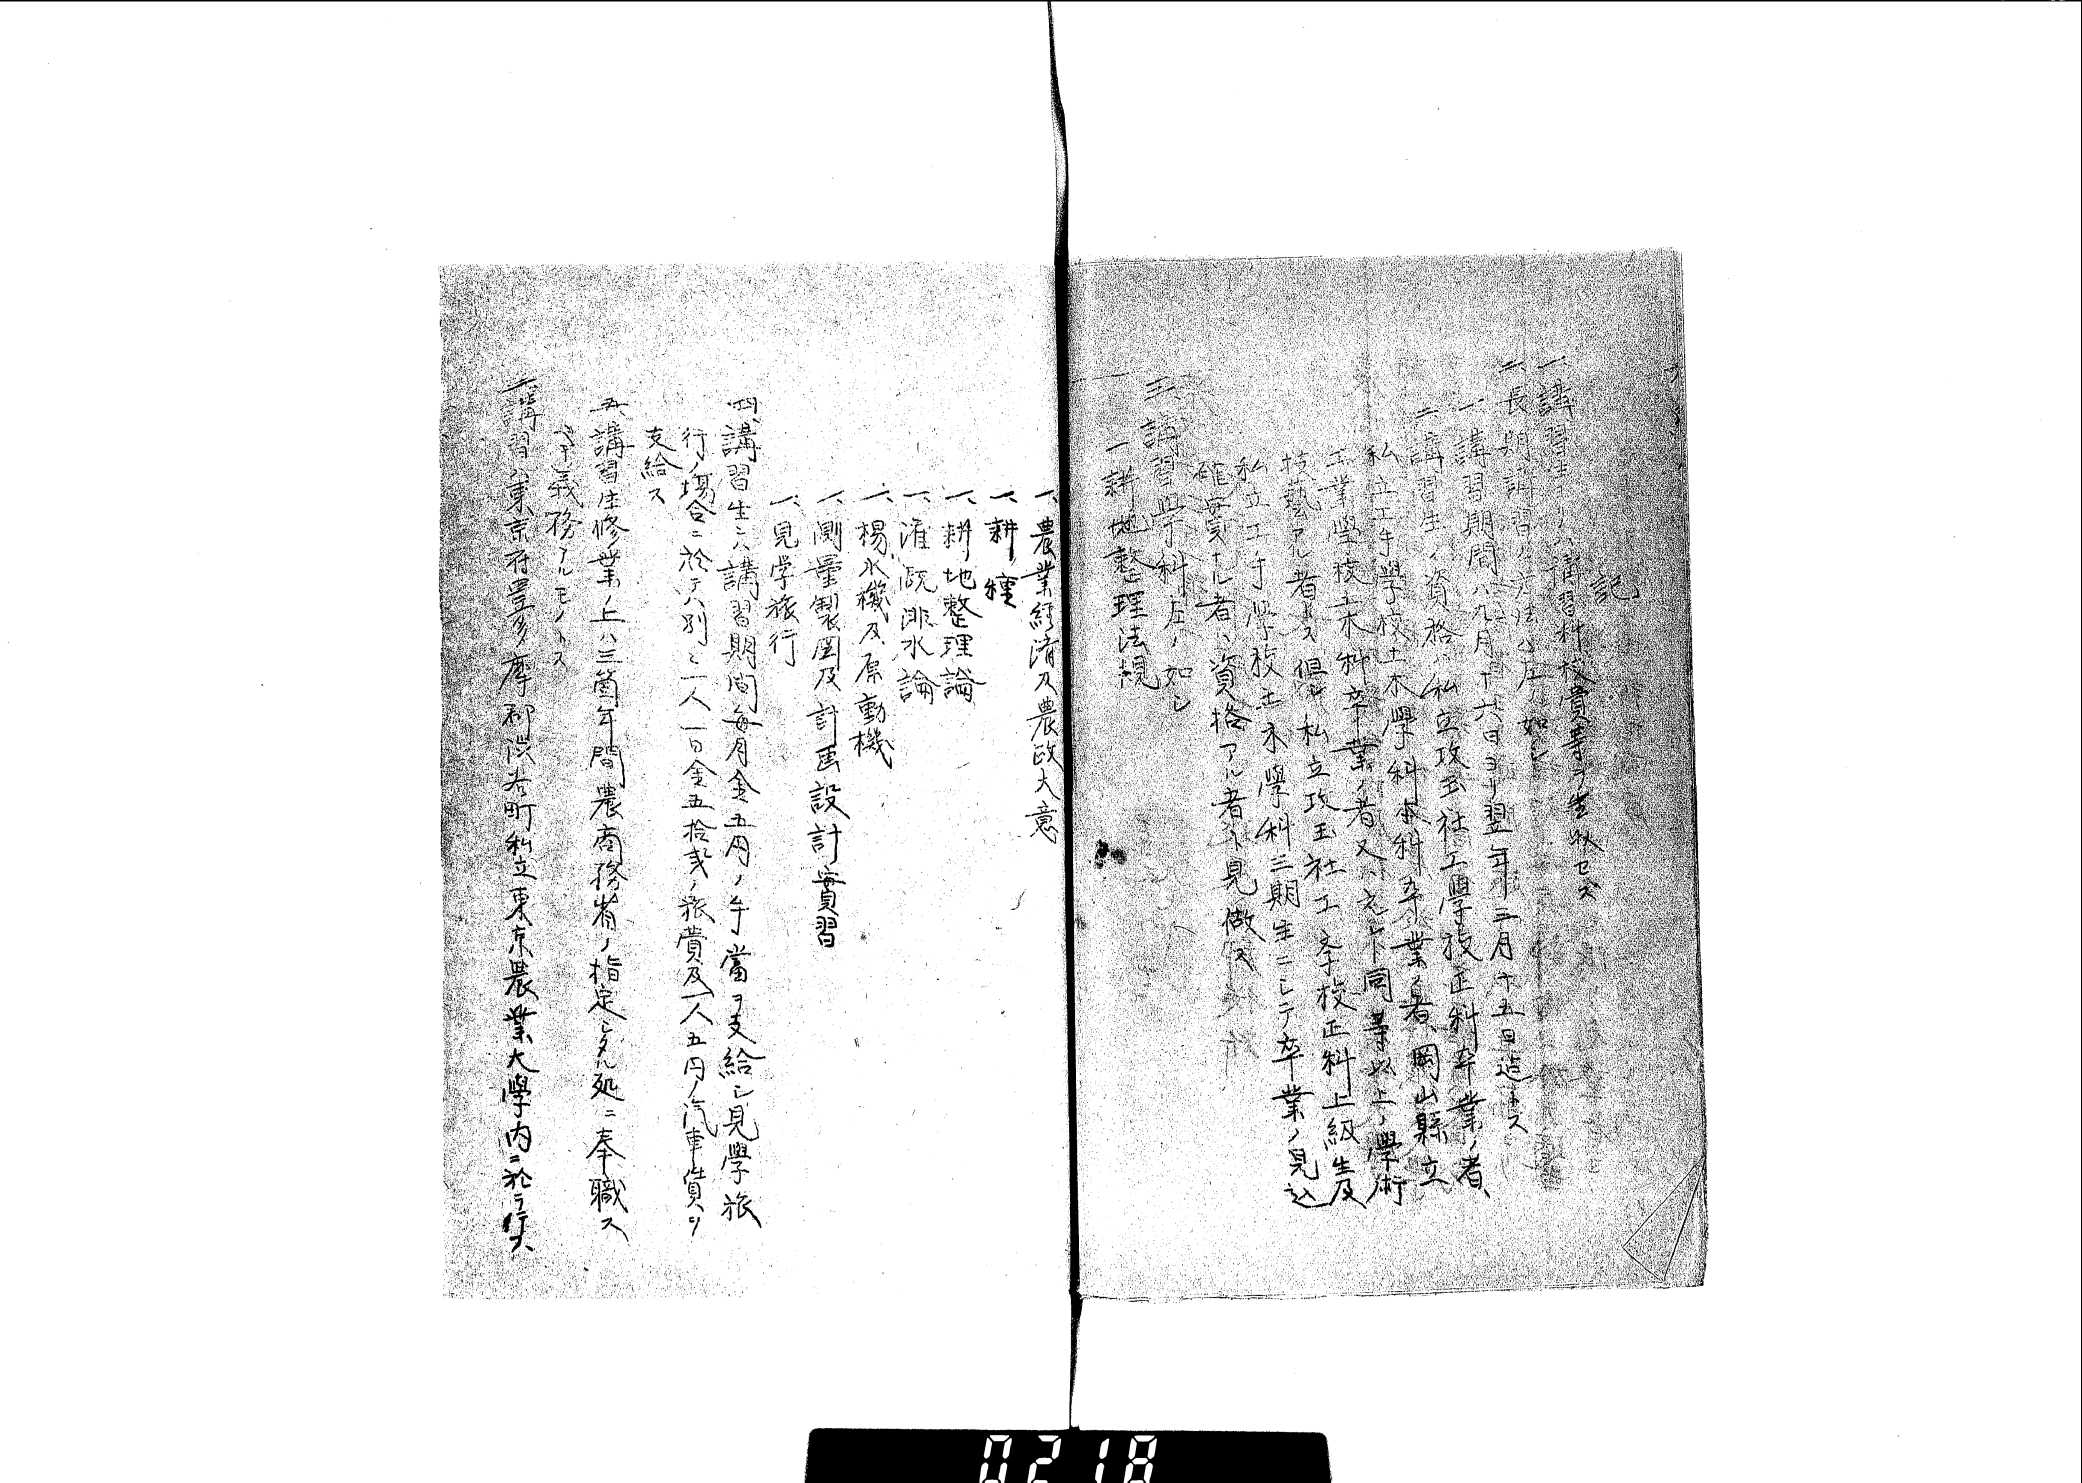 記
一、講習生ヨリハ講習料校費等ヲ徴収セズ
二、長期講習ノ方法ハ左ノ如シ
一、講習期間ハ九月十六日ヨリ翌年三月十五日迄トス
二、講習生ノ資格ハ私立攻玉社工學校正科卒業ノ者、
私立工手學校土木學科本科卒業ノ者、岡山縣立
工業學校土木科卒業ノ者又ハ之ト同等以上ノ學術
技藝アル者トス但シ私立攻玉社工学校正科上級生及
私立工手学校土木學科三期生ニシテ卒業ノ見込
確実ナル者ハ資格アル者ト見做ス
三、講習學科左ノ如シ
一耕地整理法規
一、農業経済及農政大意
一、耕種
一、耕地整理論
一、灌漑排水論
一、楊水機及原動機
一、測量製図及計画設計實習
一、見学旅行
四、講習生ニハ講習期間毎月金五円ノ手當ヲ支給シ見學旅
行ノ場合ニ於テハ別ニ一人一日金五拾銭ノ旅費及一人五円ノ汽車賃ヲ
支給ス
五、講習生修業ノ上ハ三箇年間農商務省ノ指定シタル処ニ奉職ス
ベキ義務アルモノトス
講習ハ東京府豊多摩郡渋谷町私立東京農業大學内ニ於テ行フ
0218